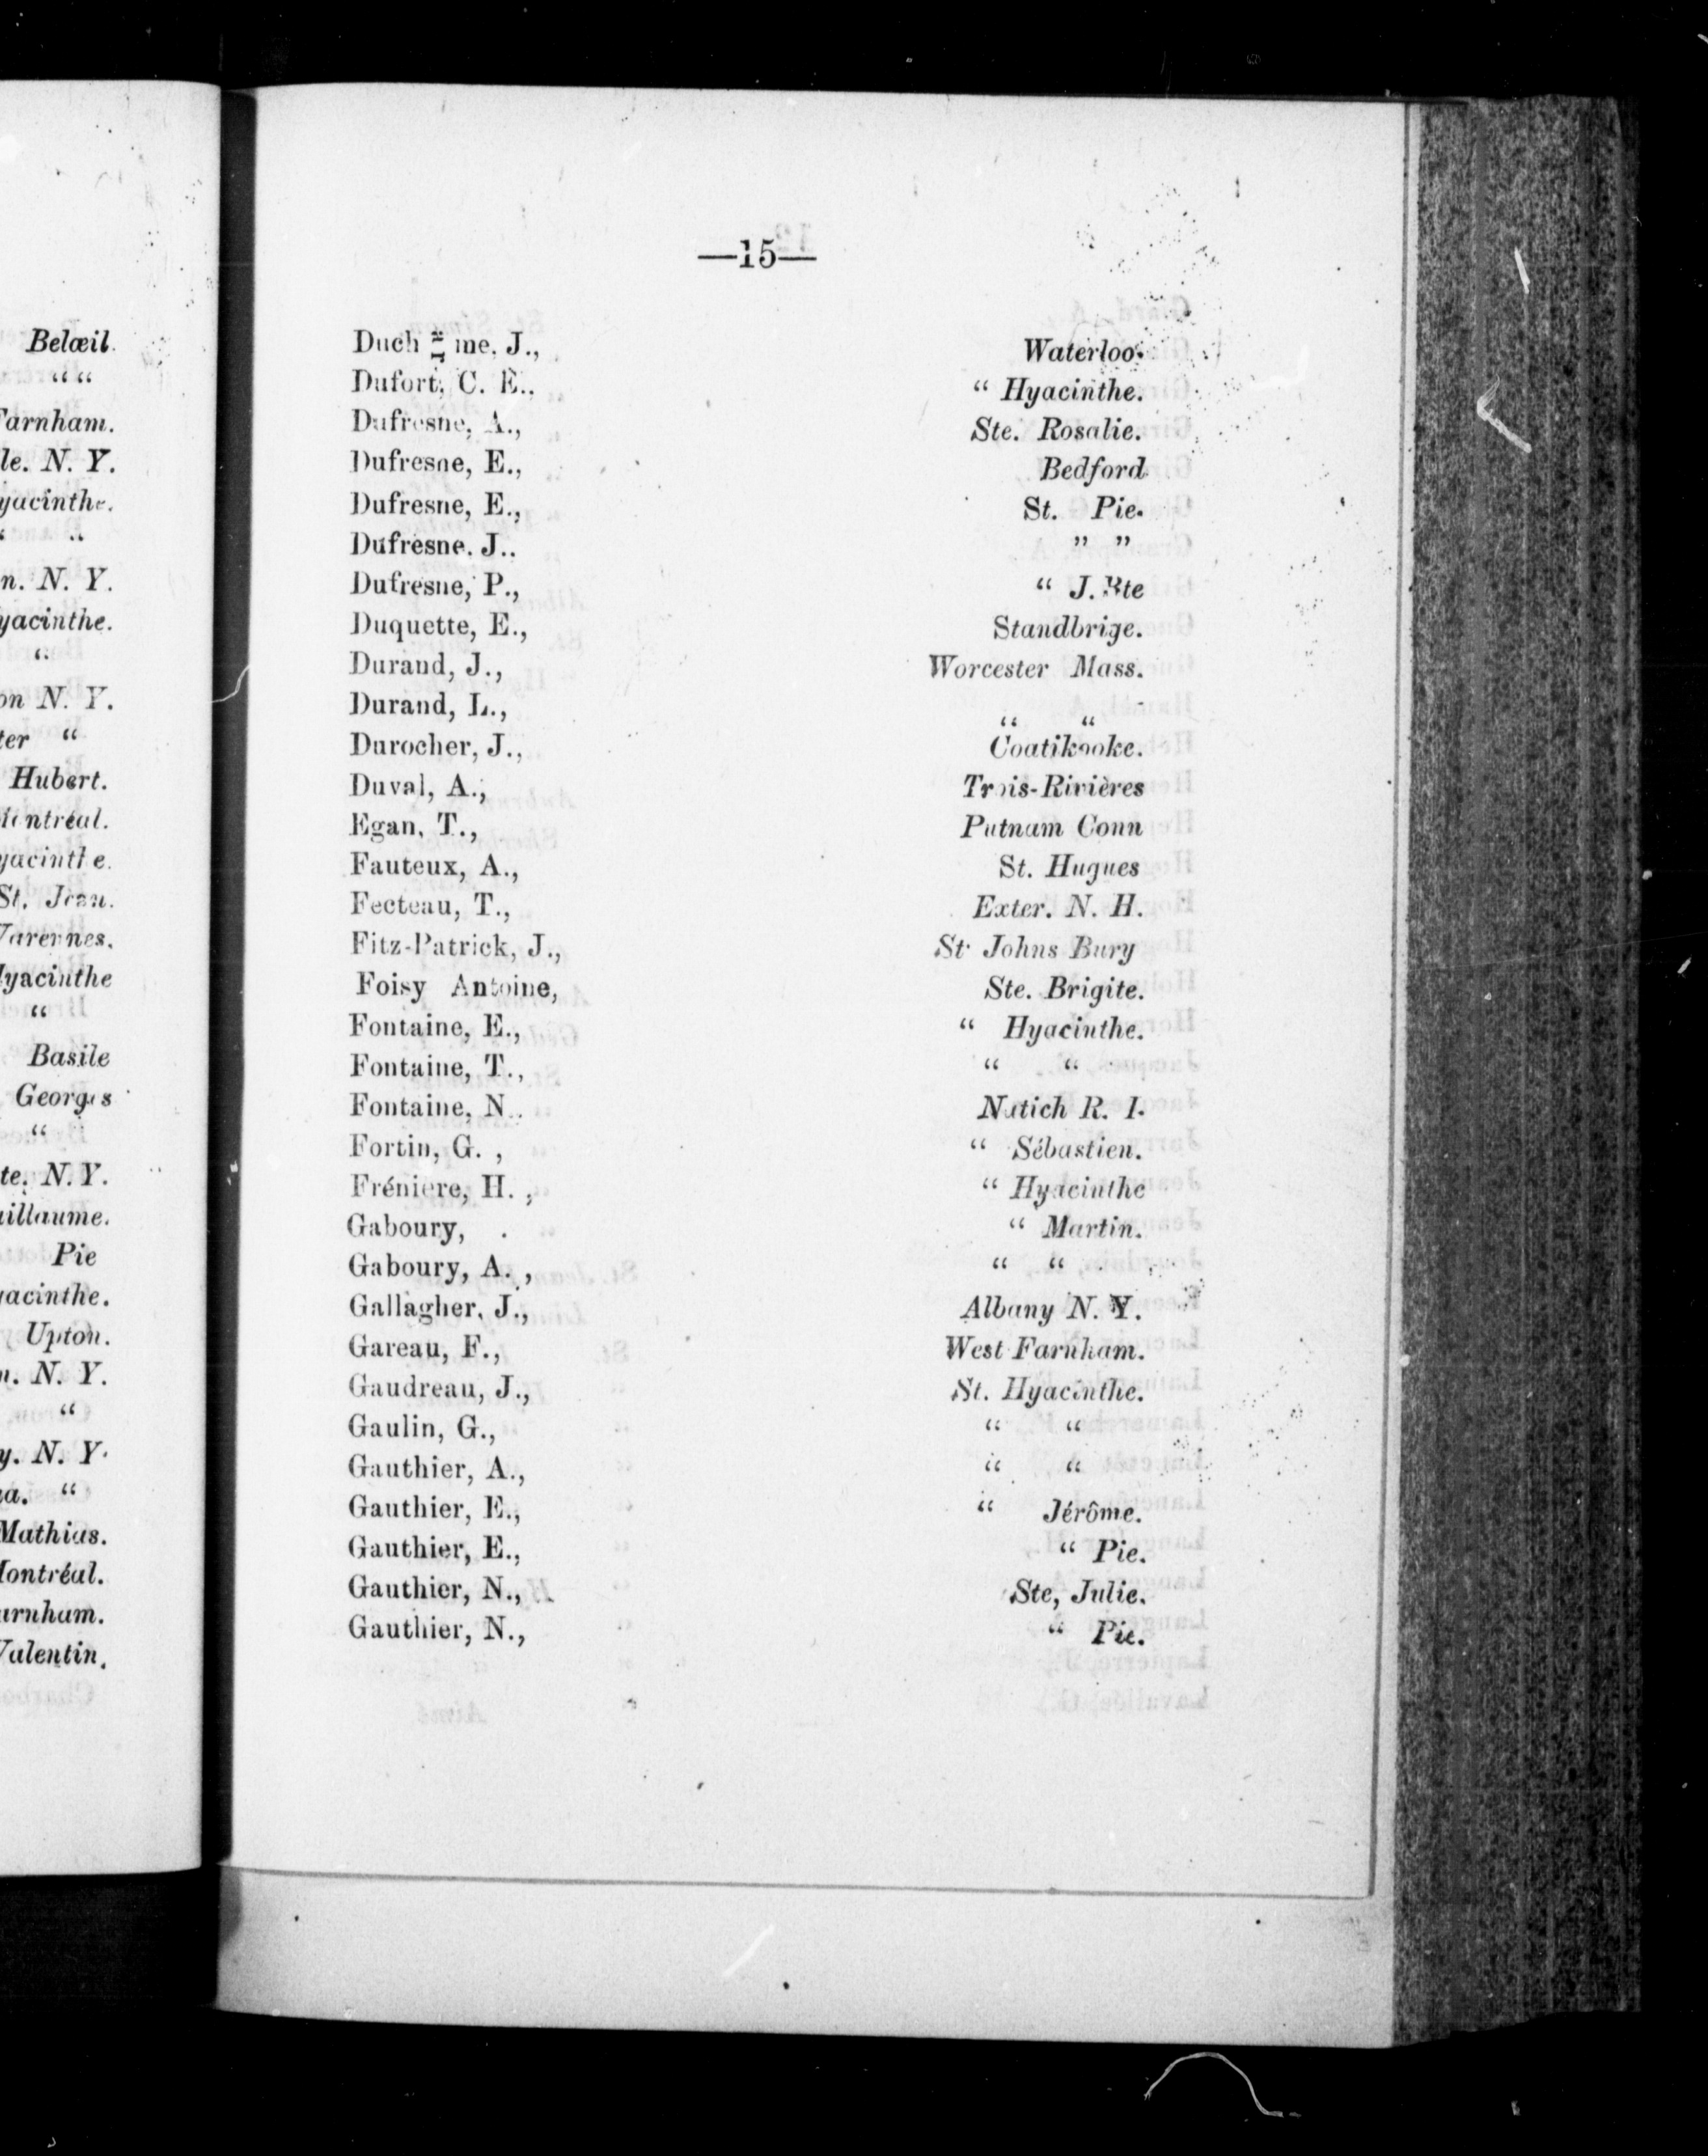 Belœil.
“ “
Farnham.
le. N. Y.
yacinthe.
“ “
n. N. Y.
yacinthe.
“
on N. Y.
ter “
Hubert.
Montréal.
yacinthe.
St. Jean.
Varennes.
Hyacinthe
“
Basile
Georges
“
te. N. Y.
uillaume.
Pie
yacinthe.
Upton.
n. N. Y.
“
y. N. Y.
na. “
Mathias.
Montréal.
arnham.
Valentin.
—15—
Duch me, J., Waterloo.
Dufort, C. E., “ Hyacinthe.
Dufresne, A., Ste. Rosalie.
Dufresne, E., Bedford
Dufresne, E., St. Pie.
Dufresne, J.. ” ”
Dufresne, P., “ J. Bte
Duquette, E., Standbrige.
Durand, J., Worcester Mass.
Durand, L., “ “
Durocher, J., Coatikooke.
Duval, A., Trois-Rivières
Egan, T., Putnam Conn
Fauteux, A., St. Hugues
Fecteau, T., Exter. N. H.
Fitz-Patrick, J., St. Johns Bury
Foisy Antoine, Ste. Brigite.
Fontaine, E., “ Hyacinthe.
Fontaine, T., “ “
Fontaine, N.. Natich R. I.
Fortin, G. , “ Sébastien.
Fréniere, H. , “ Hyacinthe
Gaboury, . “ Martin.
Gaboury, A. , “ “
Gallagher, J., Albany N. Y.
Gareau, F., West Farnham.
Gaudreau, J., St. Hyacinthe.
Gaulin, G., “ “
Gauthier, A., “ “
Gauthier, E., “ Jérôme.
Gauthier, E., “ Pie.
Gauthier, N., Ste, Julie.
Gauthier, N., “ Pie.